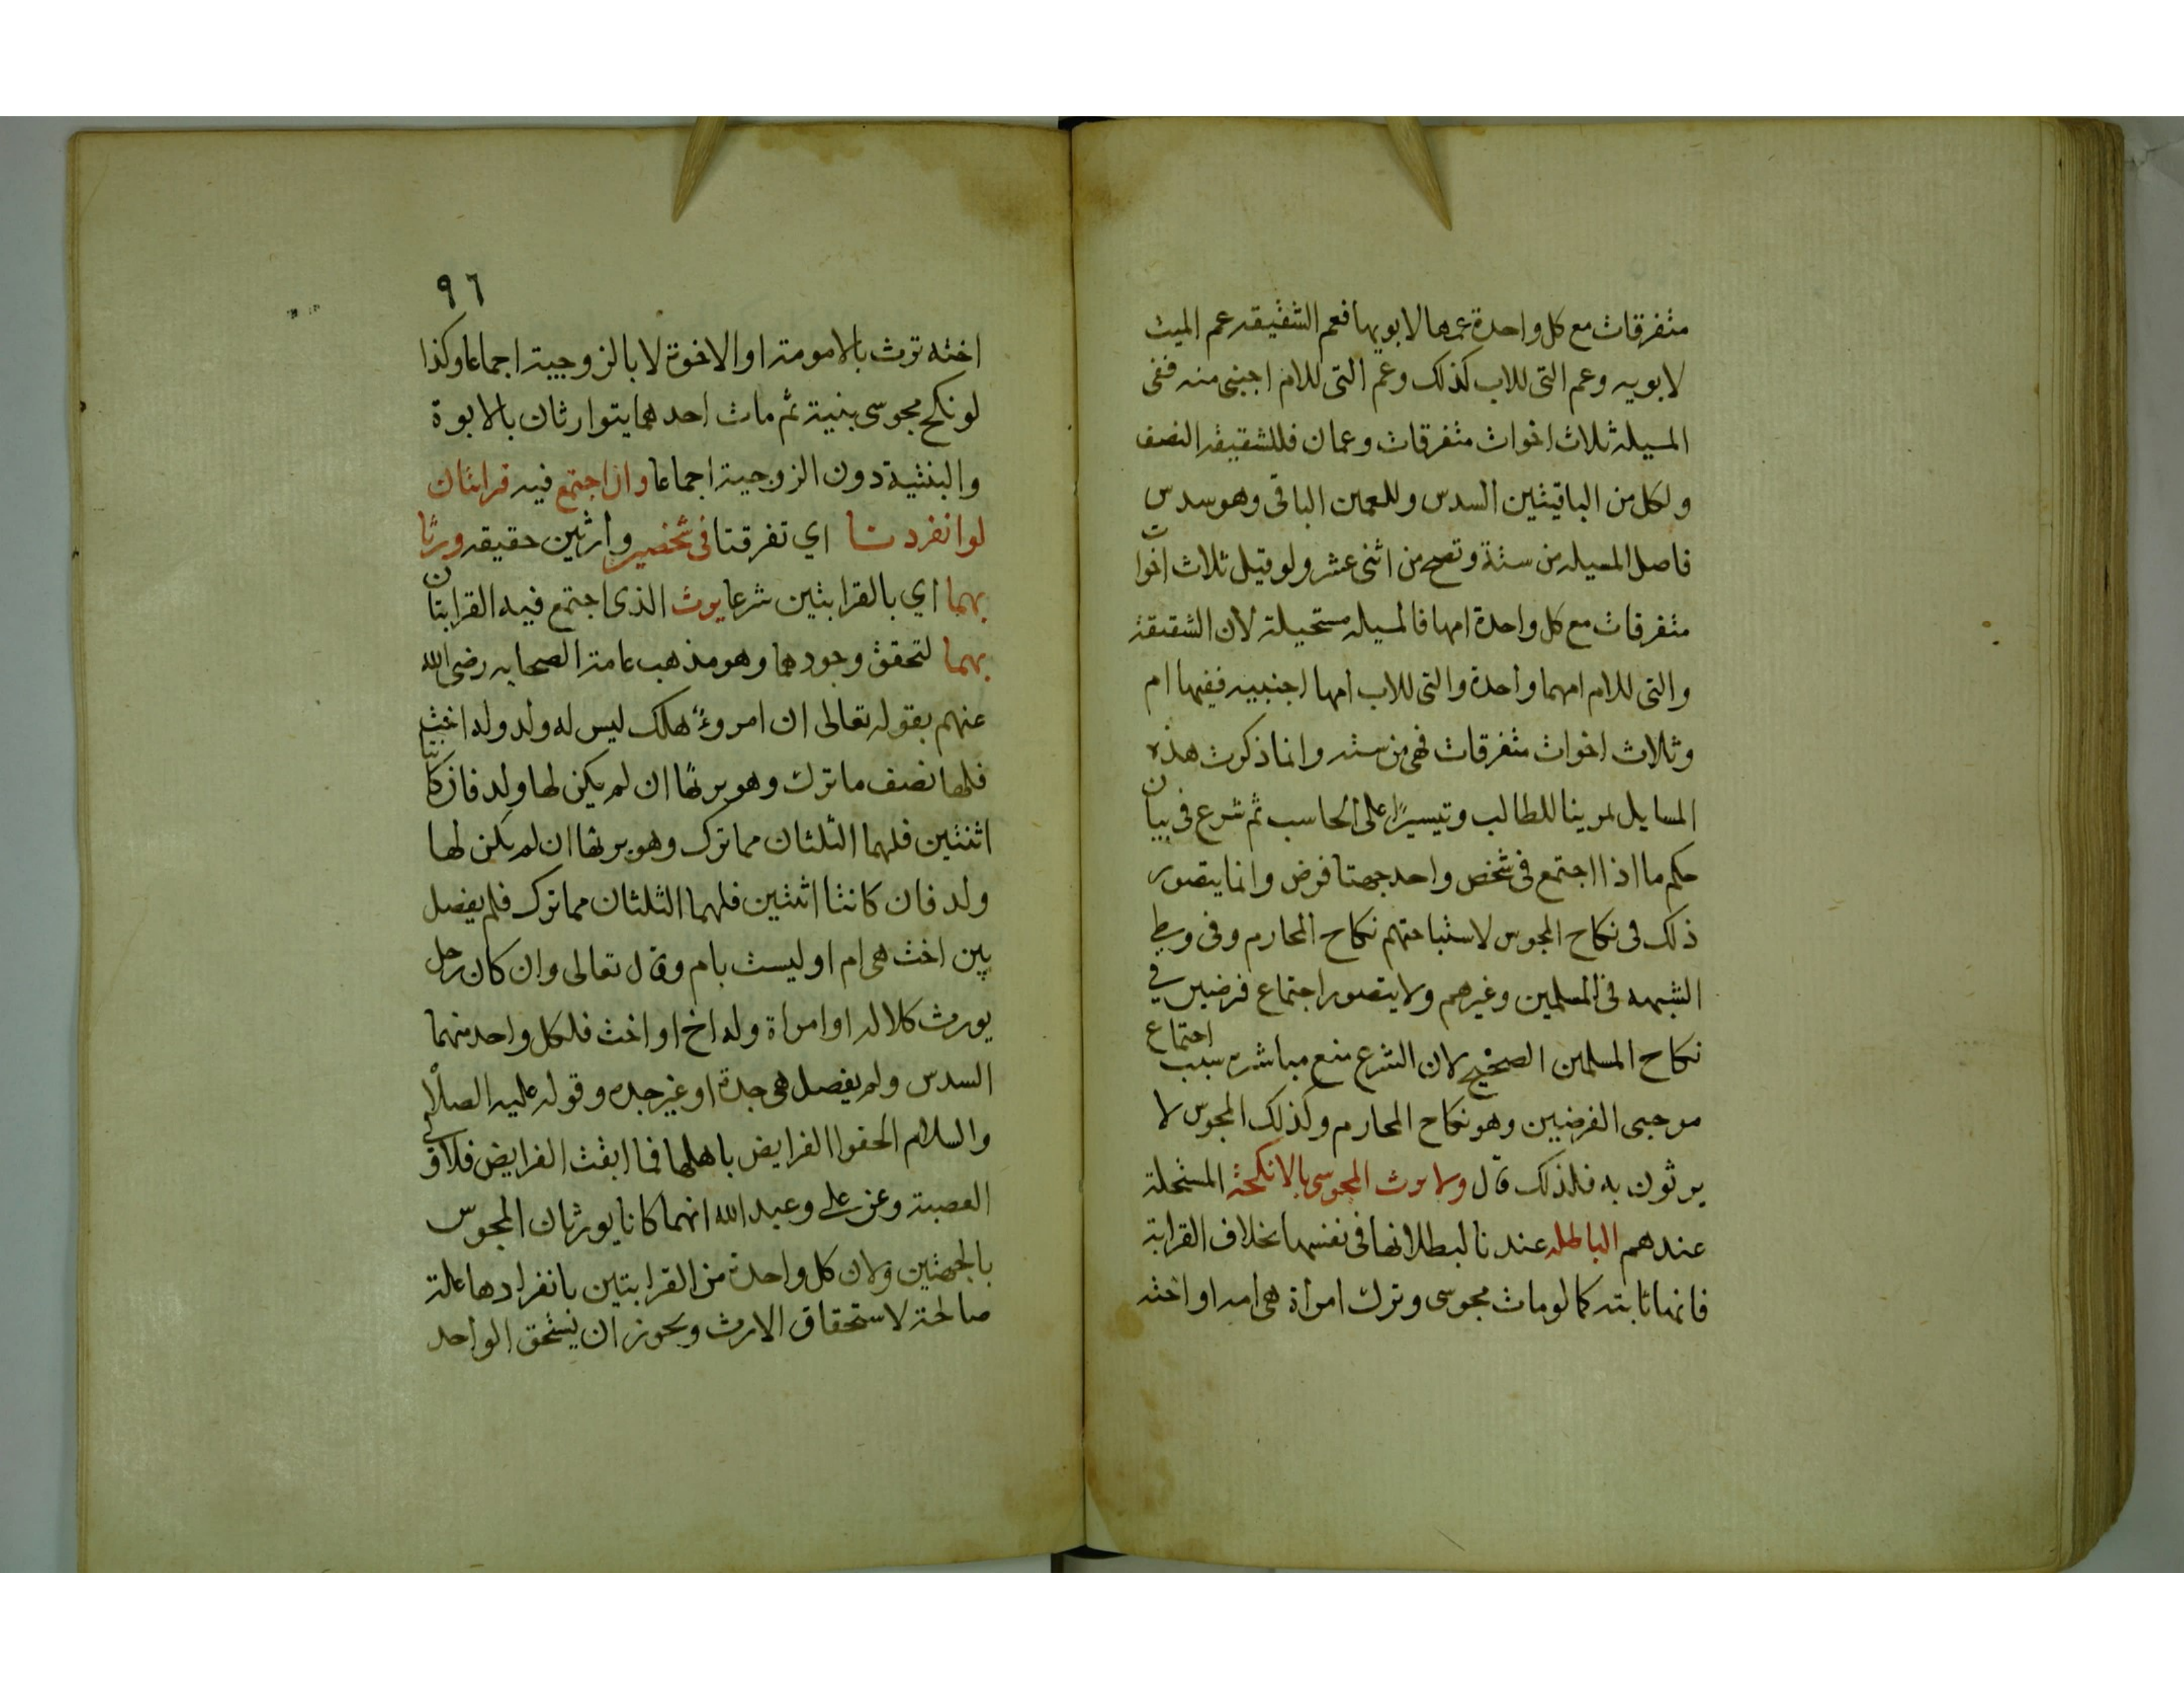 متفرقات مع كل واحدة عمها لابويها فعم الشقيقه عم الميت
لابويه وعم التى للاب كذلك وعم التى للام اجنبى منه ففى
المسيله ثلاث اخوات متفرقات وعمان فللشقيقه النصف
ولكل من الباقيتين السدس وللعمين الباقى وهو سدس
فاصل المسيله من ستة وتصح من اثنى عشر ولو قيل ثلاث اخوات
متفرقات مع كل واحدة امها فالمسيله مستحيلة لان الشقيقة
والتى للام امهما واحدة والتى للاب امها اجنبيه ففيها ام
وثلاث اخوات متفرقات فهى من سته وانما ذكرت هذه
المسايل تمرينا للطالب وتيسيرًا على الحاسب ثم شرع فى بيان
حكم ما اذا اجتمع فى شخص واحد جهتا فرض وانما يتصور
ذلك فى نكاح المجوس لاستباحتهم نكاح المحارم وفى وطي
الشبهه فى المسلمين وغيرهم ولا يتصور اجتماع فرضين في
نكاح المسلمين الصحيح لان الشرع منع مباشره سبب اجتماع
موجبى الفرضين وهو نكاح المحارم وكذلك المجوس لا
يرثون به فلذلك قال ولا يرث المجوسى بالانكحة المستحلة
عندهم الباطله عندنا لبطلانها فى نفسها بخلاف القرابة
فانها ثابته كما لو مات مجوسى وترك امراة هى امه او اخته
٩٦
اخته ترث بالامومة او الاخوة لا بالزوجية اجماعا وكذا
لو نكح مجوسى بنيته ثم مات احدهما يتوارثان بالابوة
والبنتية دون الزوجية اجماعا وان اجتمع فيه قرابتان
لو انفردتا اي تفرقتا فى شخصين وارثين حقيقه ورثا
بهما اي بالقرابتين شرعا يرث الذى اجتمع فيه القرابتان
بهما لتحقق وجودهما وهو مذهب عامة الصحابه رضى الله
عنهم بقوله تعالى ان امروءٌ هلك ليس له ولد وله اخت
فلها نصف ما ترك وهو يرثها ان لم يكن لها ولد فان كانتا
اثنتين فلهما الثلثان مما ترك وهو يرثها ان لم يكن لها
ولد فان كانتا اثنتين فلهما الثلثان مما ترك فلم يفصل
بين اخت هى ام او ليست بام وقال تعالى وان كان رجل
يورث كلاله او امراة وله اخ او اخت فلكل واحد منهما
السدس ولم يفصل هى جدة او غير جده وقوله عليه الصلاة
والسلام الحقوا الفرايض باهلها فما ابقت الفرايض فلاولى
العصبة وعن على وعبد الله انهما كانا يورثان المجوس
بالجهتين ولان كل واحدة من القرابتين بانفرادها علة
صالحة لاستحقاق الارث ويجوز ان يستحق الواحد